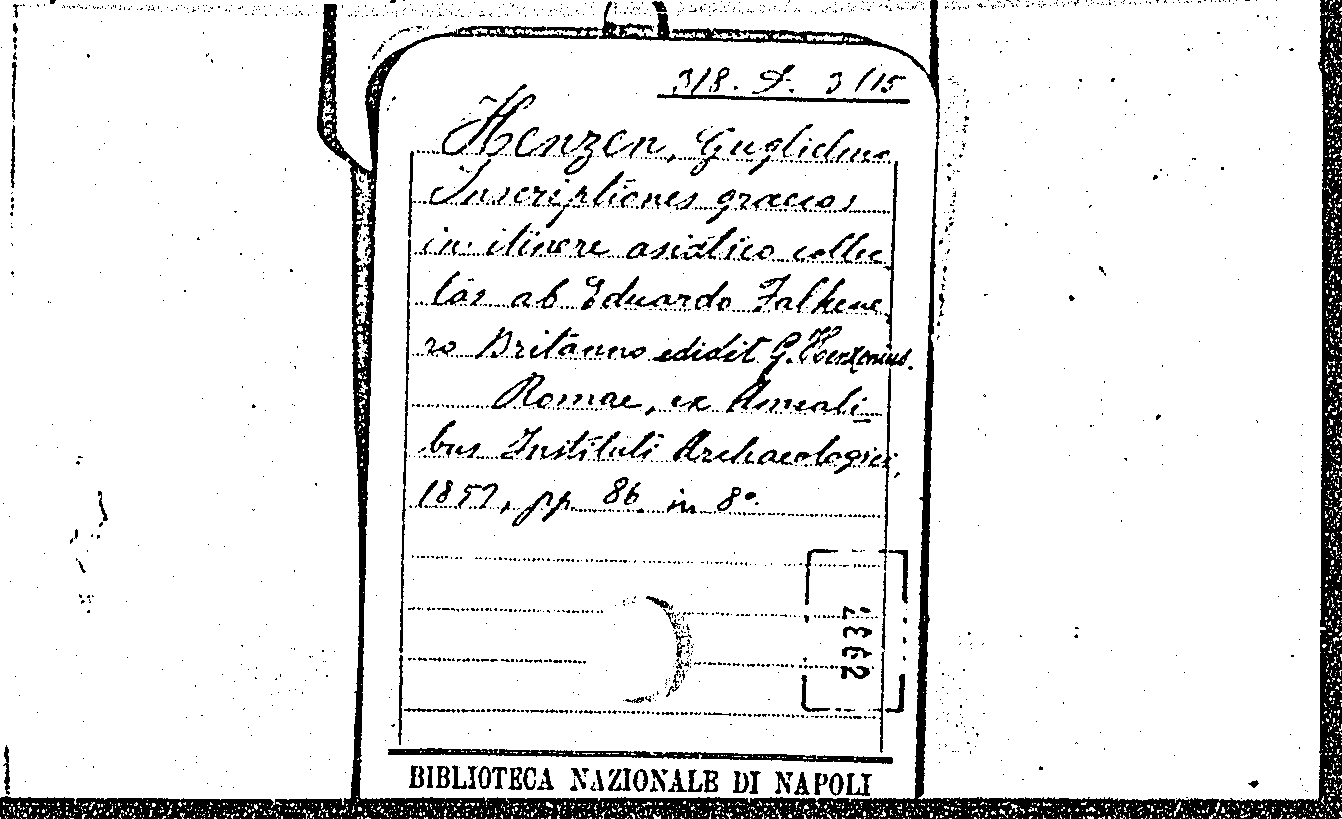 318. A. 3/15
Henzen, Guglielmo
Inscriptiones graecas
in itinere asiatico collec
tas ab Eduardo Falkene
ro Britanno edidit G. Henzenius.
Romae, ex Annali
bus Instituti Archaeologici,
1852, pp. 86. in 8°.
BIBLIOTECA NAZIONALE DI NAPOLI